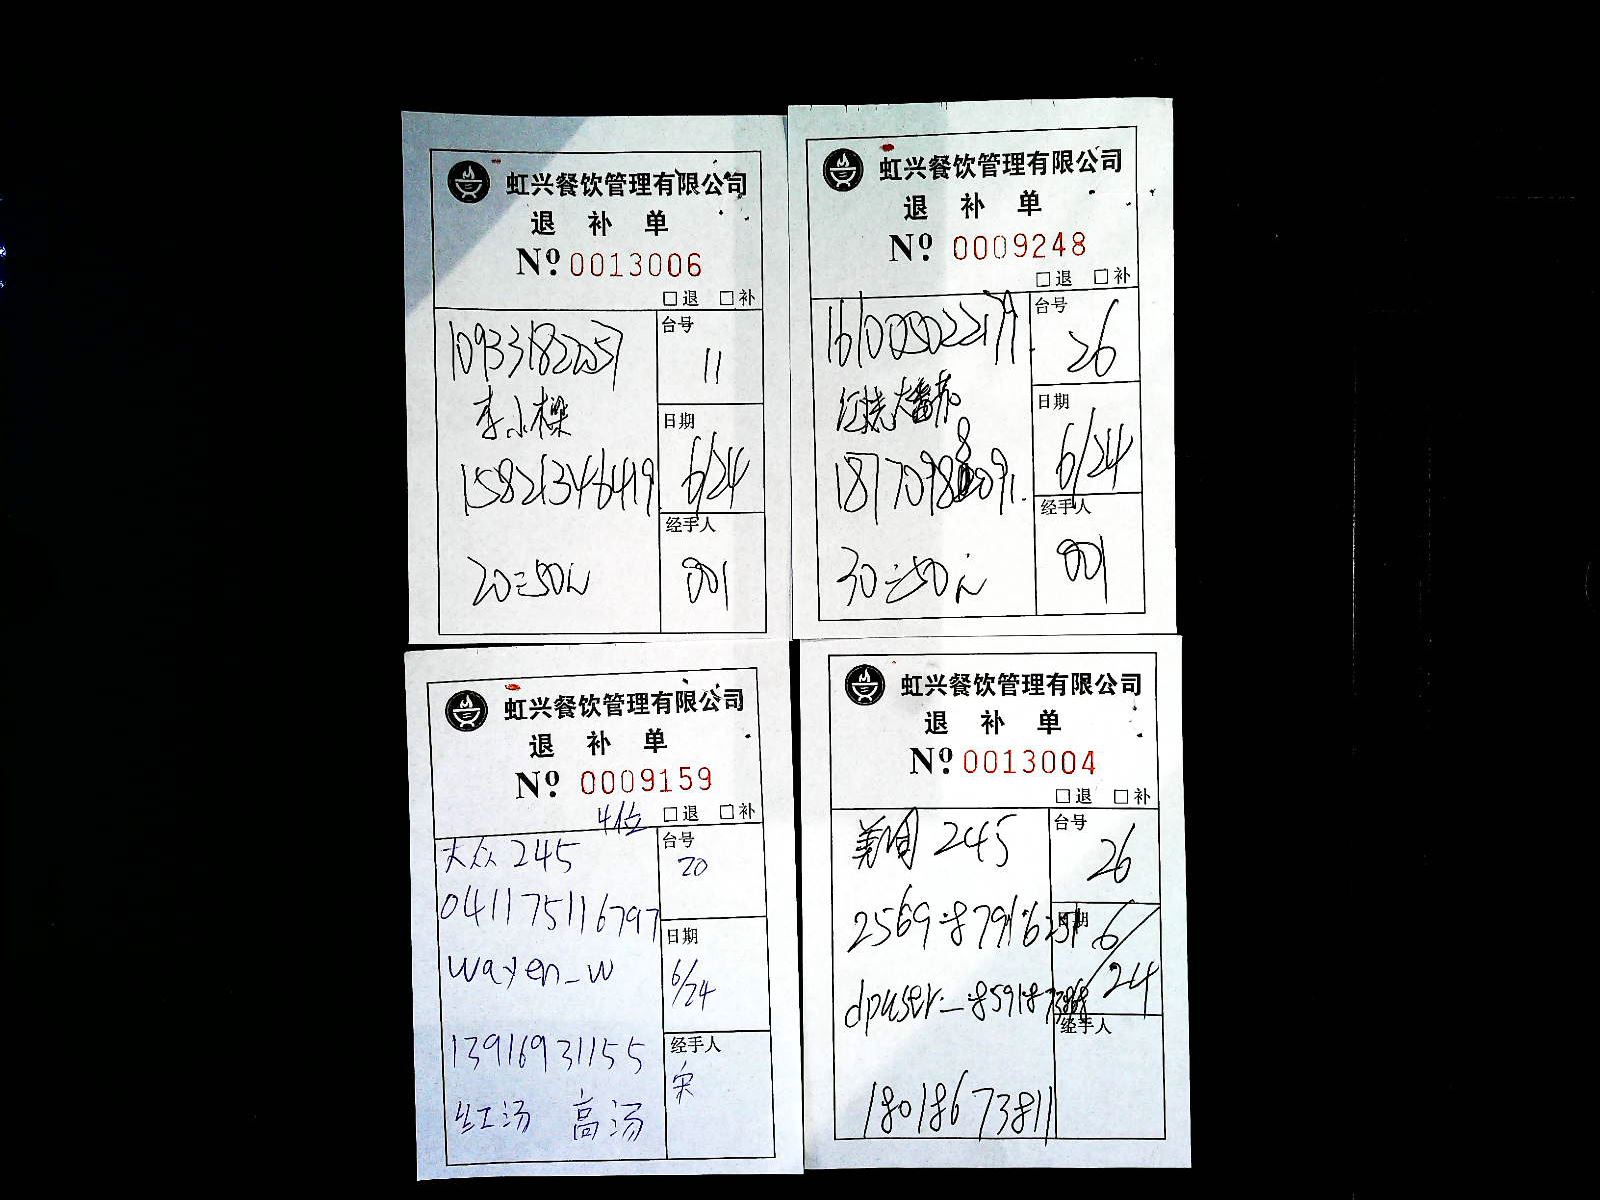 虹兴餐饮管理有限公司
退 补 单
Nº 0013006
□退 □补
台号
11
李小樑
日期
15821346419
6/24
经手人
20=50元
001
虹兴餐饮管理有限公司
退 补 单
Nº 0009248
□退 □补
台号
26
红烧大番茄
日期
6/24
经手人
30=50元
001
虹兴餐饮管理有限公司
退 补 单
Nº 0009159
4位 □退 □补
大众 245
台号
20
041175116797
日期
wayen_w
6/24
13916931155
经手人
宋
红汤 高汤
虹兴餐饮管理有限公司
退 补 单
Nº 0013004
□退 □补
美团 245
台号
26
日期
6/24
经手人
18018673811